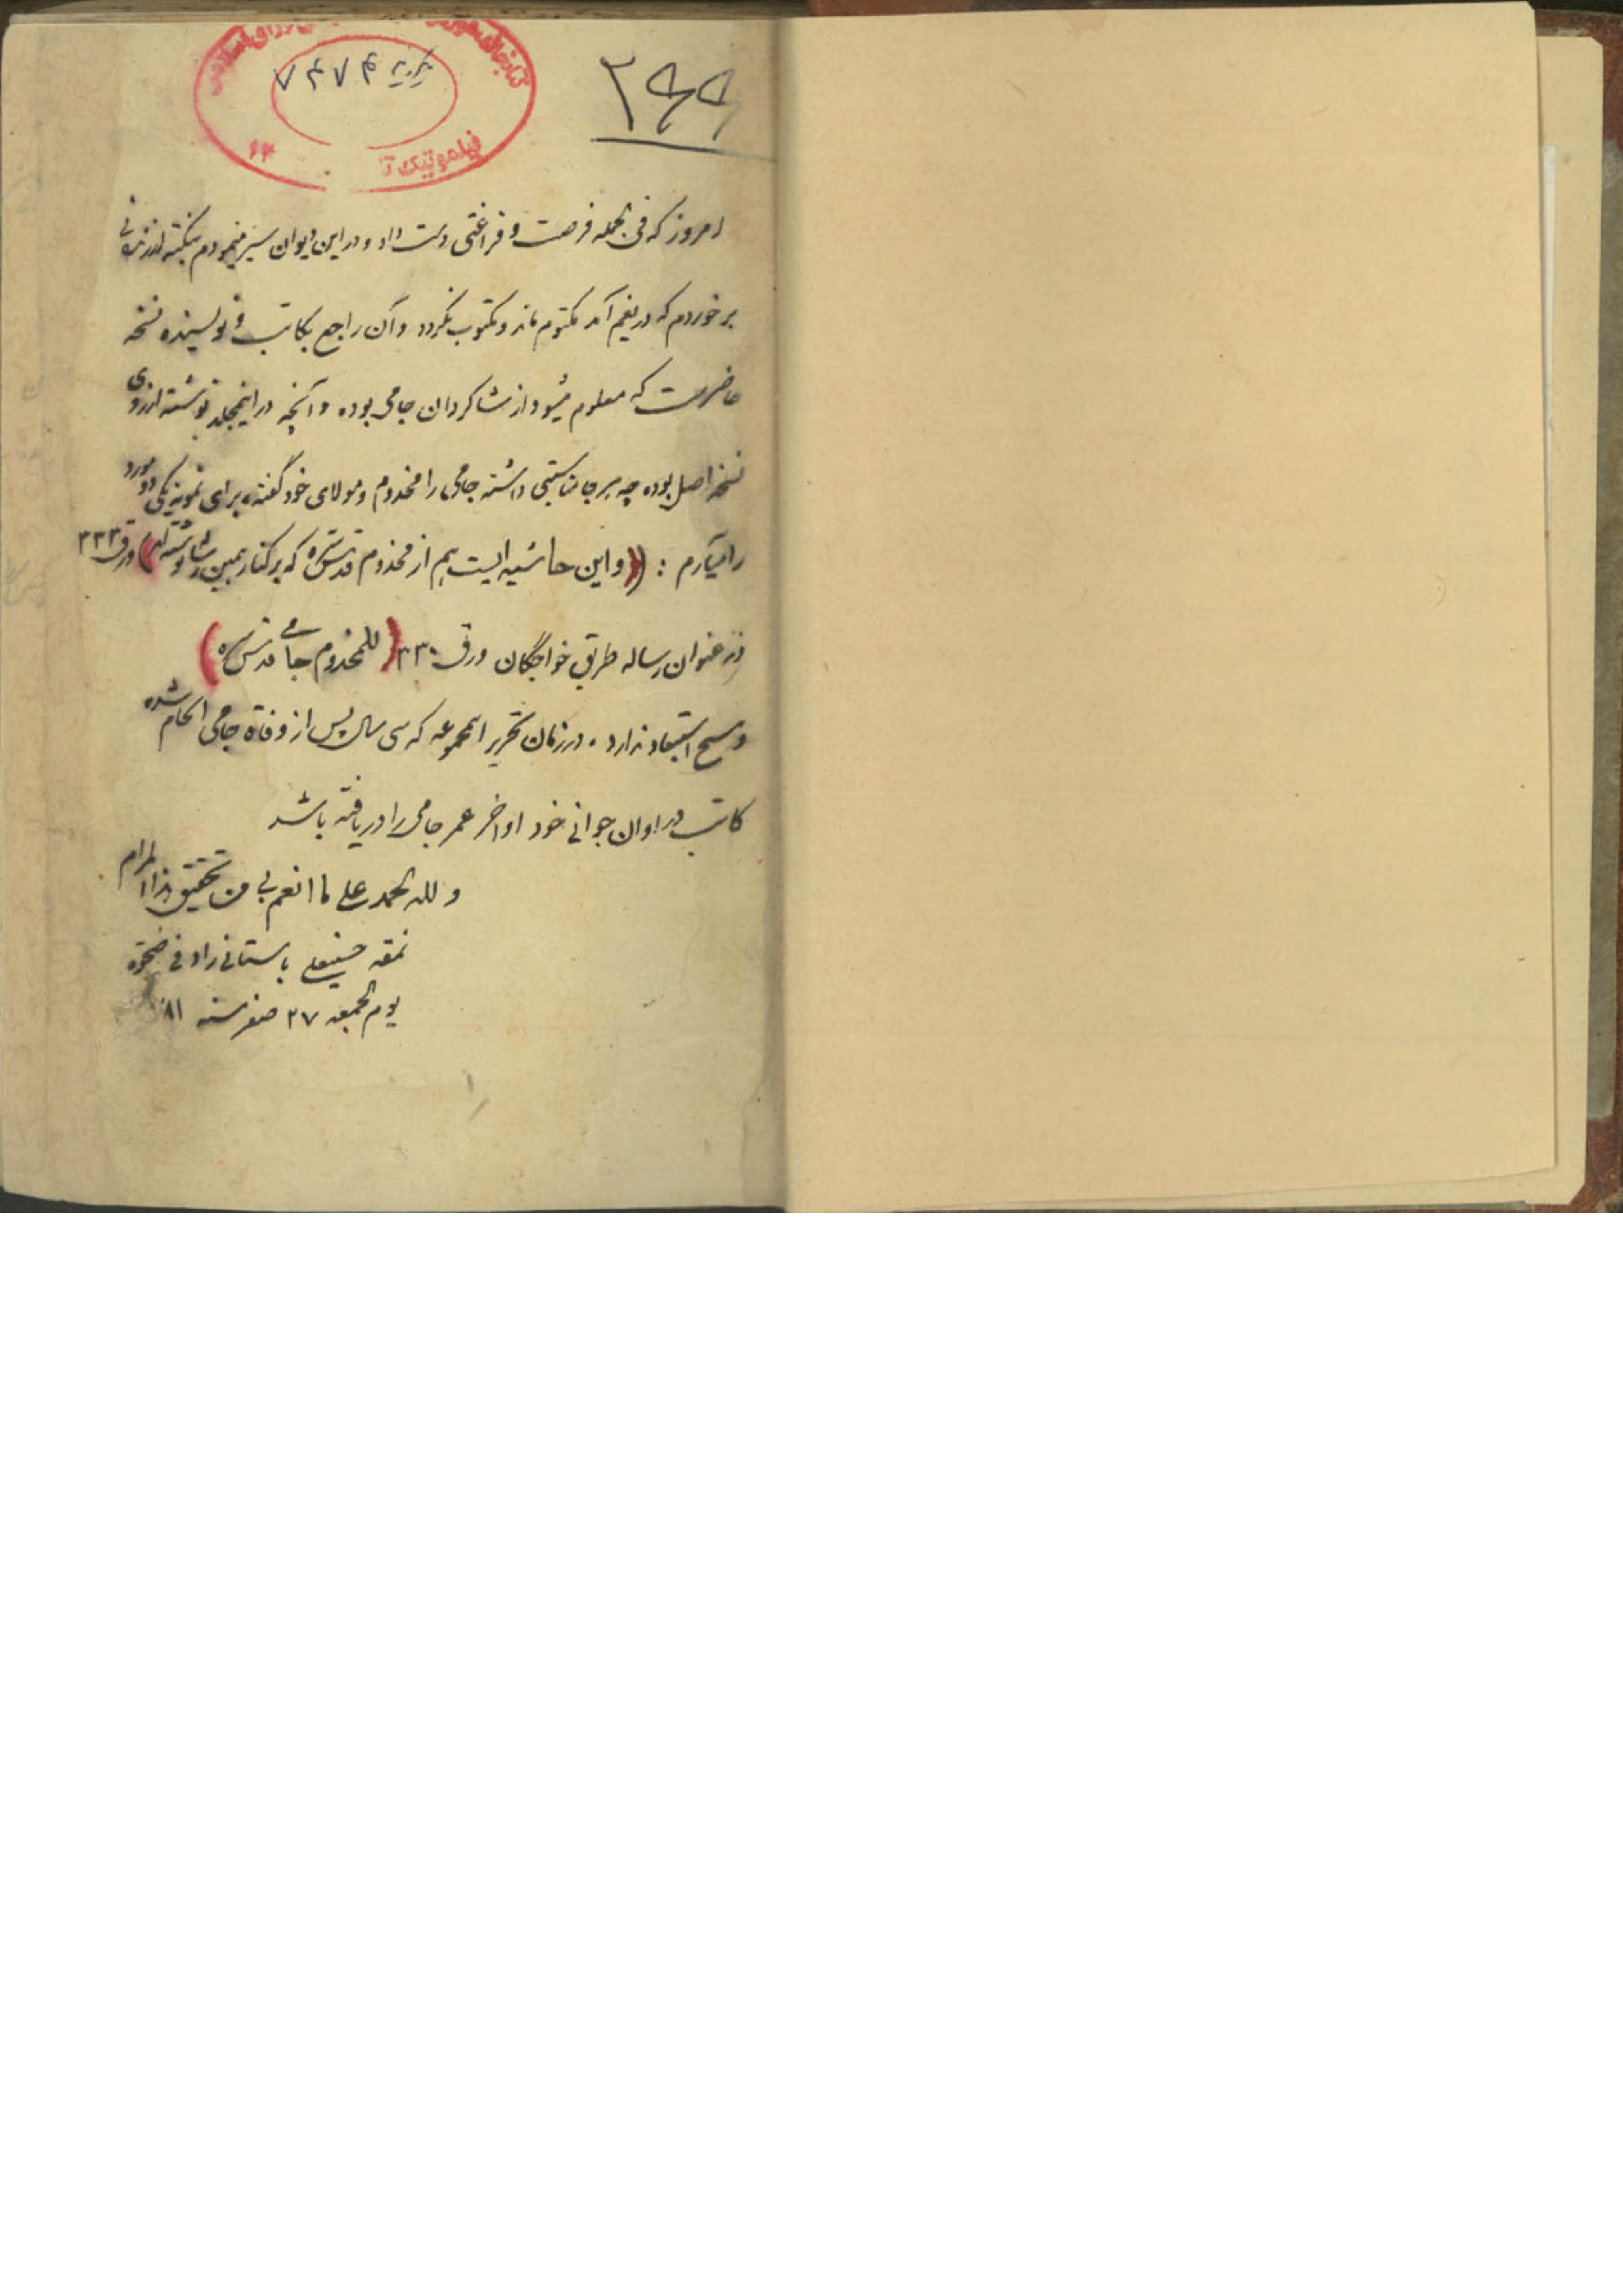 ۲۹۹
۷۴۷۴
امروز که فی الجمله فرصت و فراغتی دست داد و در این دیوان سیر مینمودم بنکته ارزشمندی
برخوردم که دریغم آمد مکتوم ماند و مکتوب نگردد و آن راجع بکاتب و نویسنده نسخه
حاضر است که معلوم میشود از شاگردان جامی بوده و آنچه در اینمجلد نوشته از روی
نسخه اصل بوده چه هر جا مناسبتی داشته جامی را مخدوم و مولای خود گفته، برای نمونه یکی دو مورد
را میآرم : ((و این حاشیه ایست هم از مخدوم قدس سره که بر کنار همین نوشته اند)) ورق ۳۳۳
در عنوان رساله طریق خواجگان ورق ۳۳۰ (للمخدوم جامی قدس سره)
و هیچ استبعاد ندارد. در زمان تحریر این مجموعه که سی سال پس از وفاة جامی انجام شده
کاتب در اوان جوانی خود اواخر عمر جامی را دریافته باشد
و لله الحمد علی ما انعم بی من تحقیق هذا المرام
نمقه حسینعلی باستانی راد فی ضحوة
یوم الجمعه ۲۷ صفر سنه ۸۱